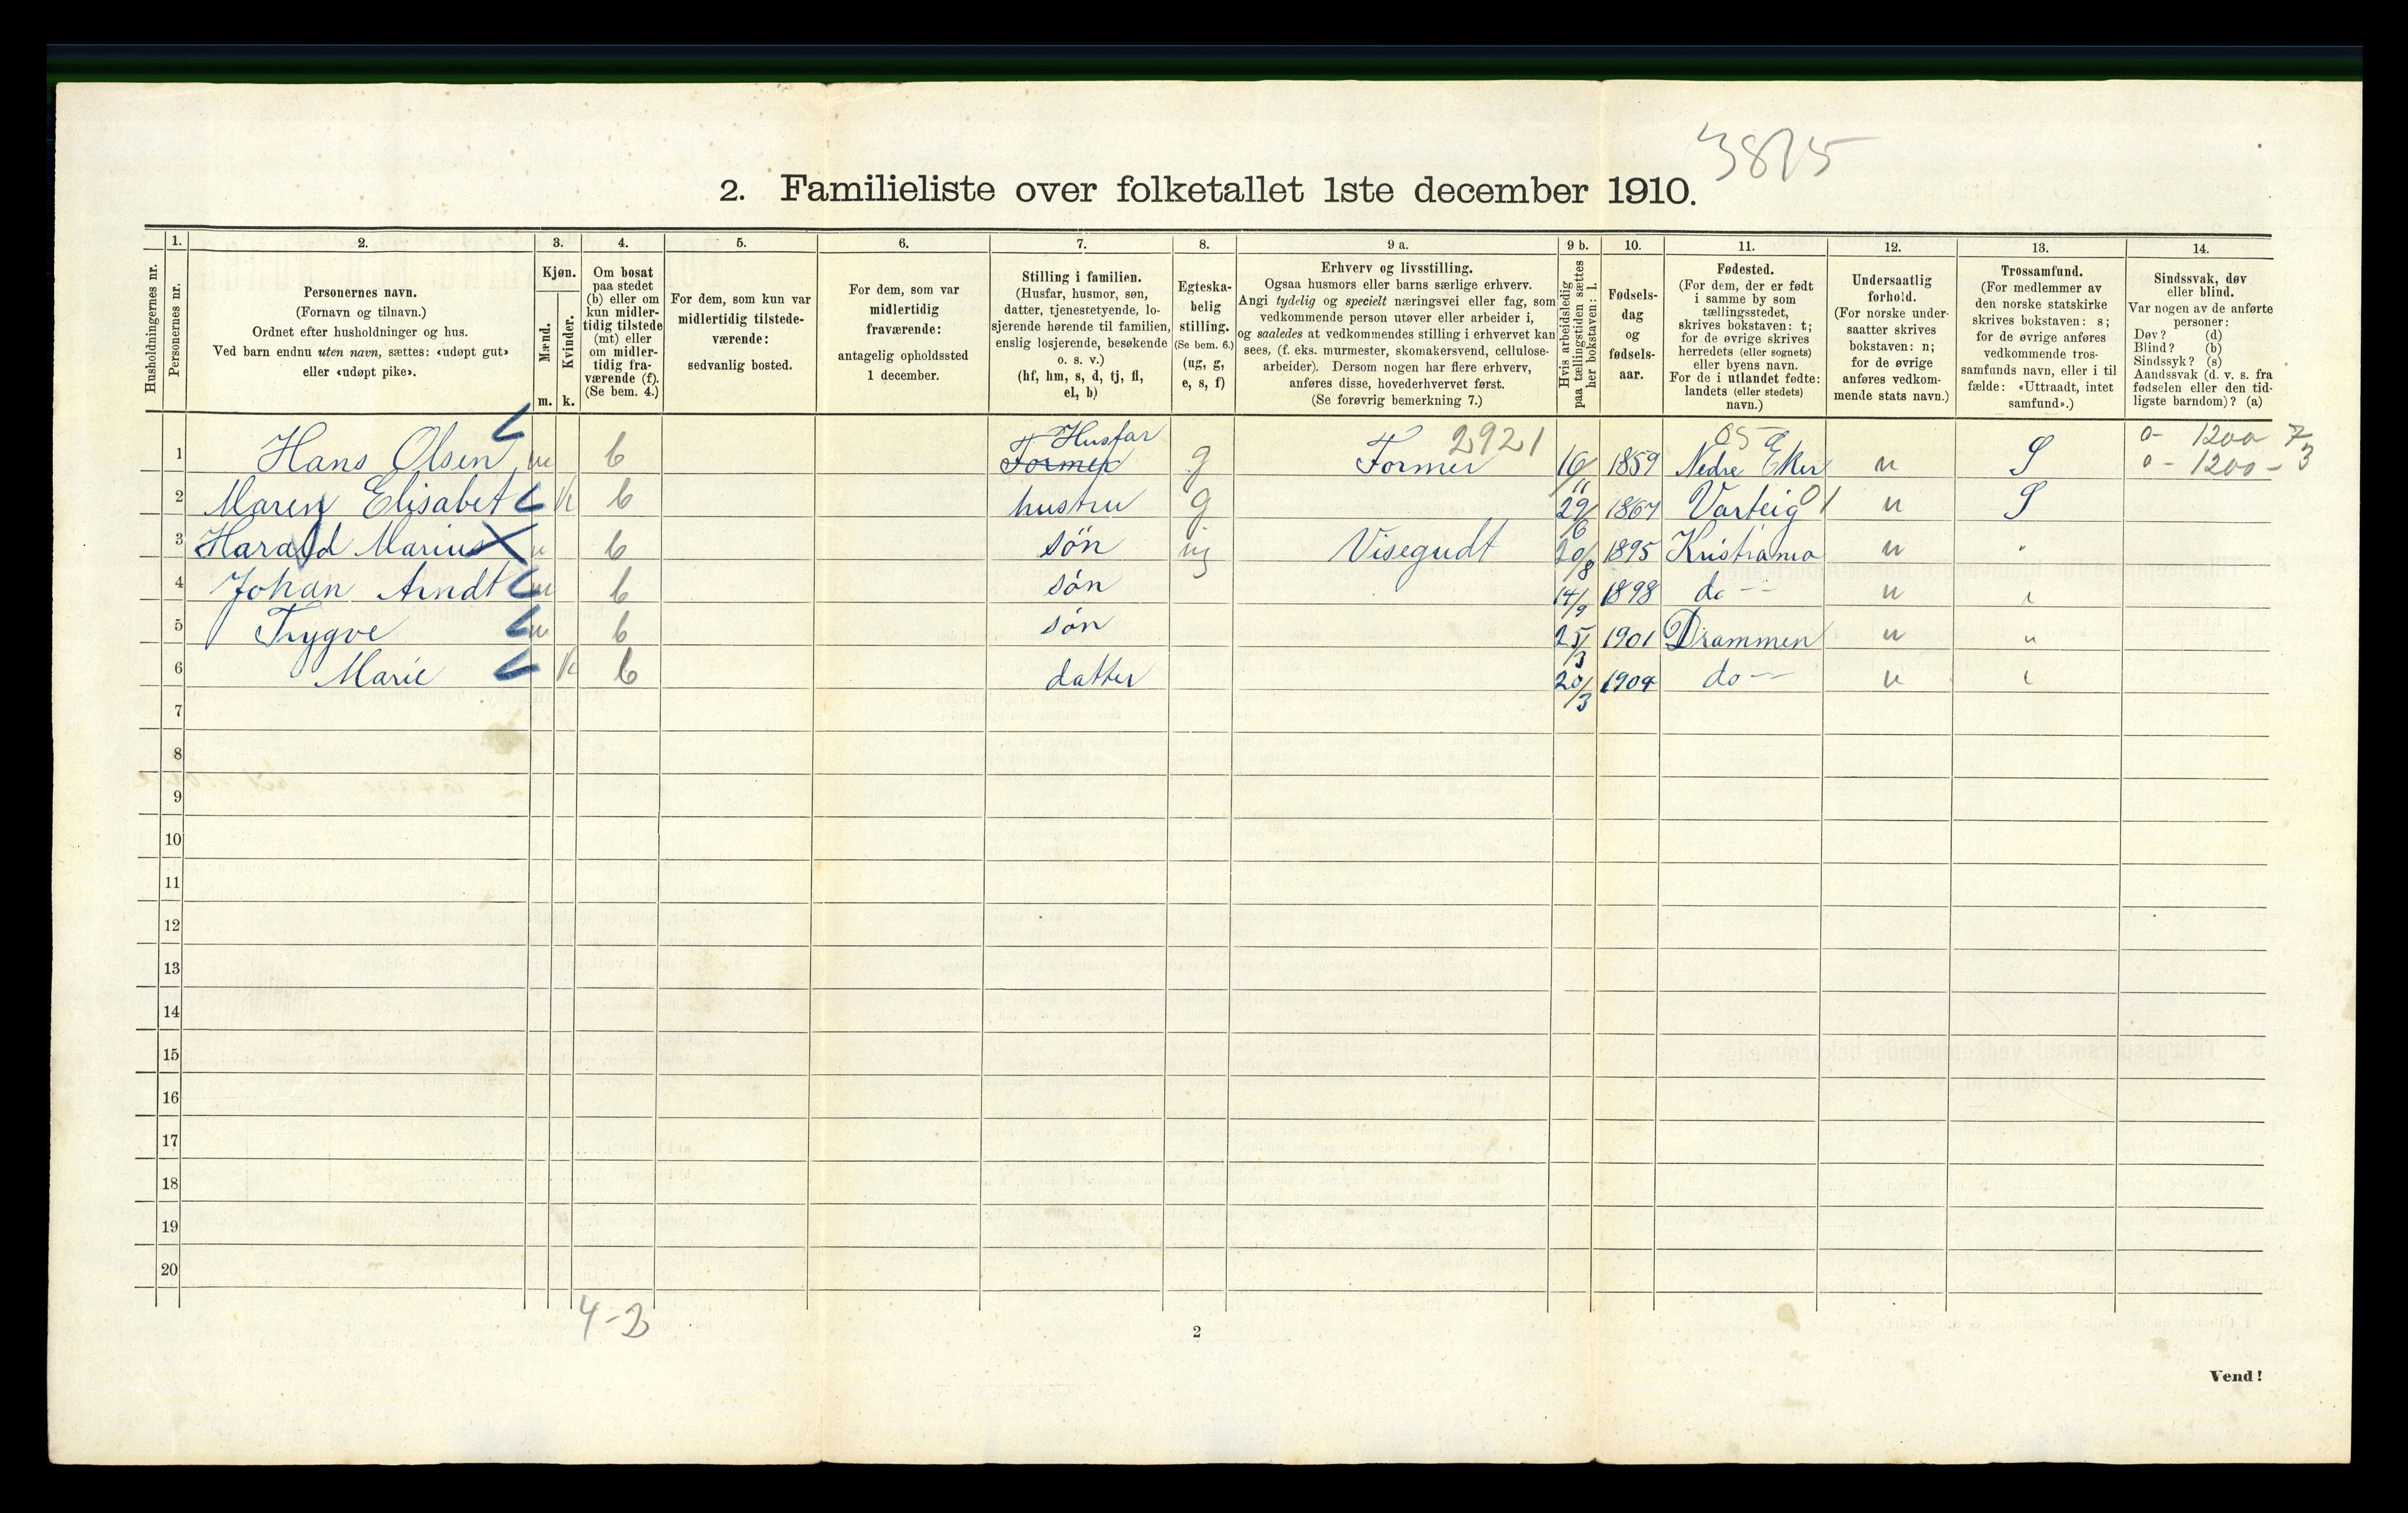 3815
2. Familieliste over folketallet 1ste december 1910.
Husholdningernes nr.
1. 2. 3. 4. 5. 6. 7. 8. 9 a. 9 b. 10. 11. 12. 13. 14.
Personernes nr.
Personernes navn.
(Fornavn og tilnavn.)
Ordnet efter husholdninger og hus.
Ved barn endnu uten navn, sættes: «udøpt gut»
eller «udøpt pike».
Kjøn.
Mænd.
Kvinder.
m. k.
Om bosat
paa stedet
(b) eller om
kun midler-
tidig tilstede
(mt) eller
om midler-
tidig fra-
værende (f).
(Se bem. 4.)
For dem, som kun var
midlertidig tilstede-
værende:
sedvanlig bosted.
For dem, som var
midlertidig
fraværende:
antagelig opholdssted
1 december.
Stilling i familien.
(Husfar, husmor, søn,
datter, tjenestetyende, lo-
sjerende hørende til familien,
enslig losjerende, besøkende
o. s. v.)
(hf, hm, s, d, tj, fl,
el, b)
Egteska-
belig
stilling.
(Se bem. 6.)
(ug, g,
e, s, f)
Erhverv og livsstilling.
Ogsaa husmors eller barns særlige erhverv.
Angi tydelig og specielt næringsvei eller fag, som
vedkommende person utøver eller arbeider i,
og saaledes at vedkommendes stilling i erhvervet kan
sees, (f. eks. murmester, skomakersvend, cellulose-
arbeider). Dersom nogen har flere erhverv,
anføres disse, hovederhvervet først.
(Se forøvrig bemerkning 7.)
Hvis arbeidsledig
paa tællingstiden sættes
her bokstaven: l.
Fødsels-
dag
og
fødsels-
aar.
Fødested.
(For dem, der er født
i samme by som
tællingsstedet,
skrives bokstaven: t;
for de øvrige skrives
herredets (eller sognets)
eller byens navn.
For de i utlandet fødte:
landets (eller stedets)
navn.)
Undersaatlig
forhold.
(For norske under-
saatter skrives
bokstaven: n;
for de øvrige
anføres vedkom-
mende stats navn.)
Trossamfund.
(For medlemmer av
den norske statskirke
skrives bokstaven: s;
for de øvrige anføres
vedkommende tros-
samfunds navn, eller i til
fælde: «Uttraadt, intet
samfund».)
Sindssvak, døv
eller blind.
Var nogen av de anførte
personer:
Døv? (d)
Blind? (b)
Sindssyk? (s)
Aandssvak (d. v. s. fra
fødselen eller den tid-
ligste barndom)? (a)
Husfar 2921 05 0- 1200 7
1 Hans Olsen m b Former g Former 16/11 1859 Nedre Eker n S 0 - 1200 - 3
2 Maren Elisabet k b hustru g 29/6 1867 Varteig 01 n S
3 Harald Marius m b søn ug Visegudt 20/8 1895 Kristiania n
4 Johan Arndt m b søn 14/9 1898 do - n
5 Trygve m b søn 25/3 1901 Drammen n "
6 Marie k b datter 20/3 1904 do - n
7
8
9
10
11
12
13
14
15
16
17
18
19
20
4-2
2
Vend!